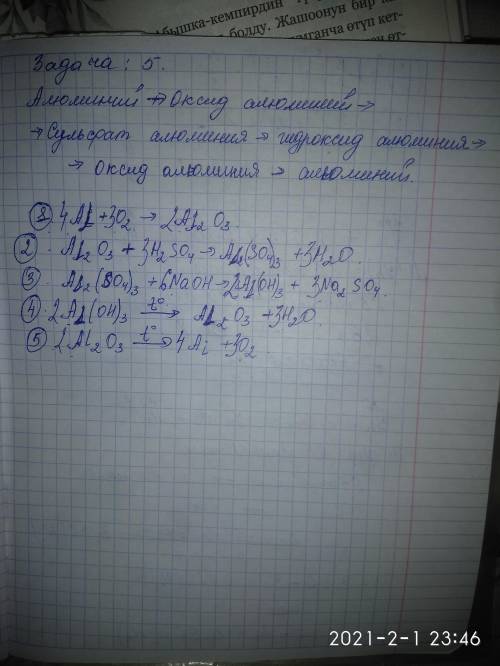 бышка-кемпирдин
болду. Жашоонун бир ка
ымганча өтүп кет-
Задача: 5.
Алюминий → Оксид алюминий →
→ Сульфат алюминия → гидроксид алюминия →
→ оксид алюминия → алюминий.
① 4Al + 3O₂ → 2Al₂O₃
② Al₂O₃ + 3H₂SO₄ → Al₂(SO₄)₃ + 3H₂O
③ Al₂(SO₄)₃ + 6NaOH → 2Al(OH)₃ + 3Na₂SO₄
④ 2Al(OH)₃ t° → Al₂O₃ + 3H₂O
⑤ 2Al₂O₃ t° → 4Al + 3O₂
2021-2-1 23:46